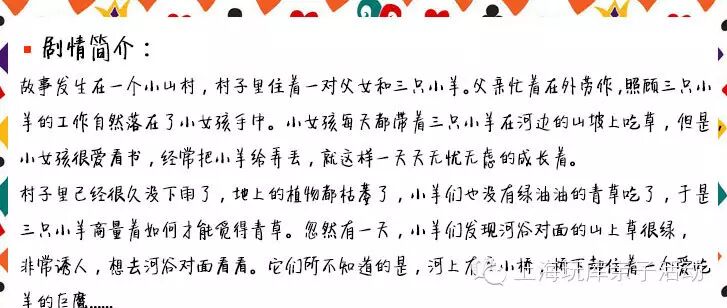 剧情简介：
故事发生在一个小山村，村子里住着一对父女和三只小羊。父亲忙着在外劳作，照顾三只小
羊的工作自然落在了小女孩手中。小女孩每天都带着三只小羊在河边的山坡上吃草，但是
小女孩很爱看书，经常把小羊给弄丢，就这样一天天无忧无虑的成长着。
村子里已经很久没下雨了，地上的植物都枯萎了，小羊们也没有绿油油的青草吃了，于是
三只小羊商量着如何才能觅得青草。忽然有一天，小羊们发现河谷对面的山上草很绿，
非常诱人，想去河谷对面看看。它们所不知道的是，河上有一小桥，桥下却住着一个爱吃
羊的巨魔......
上海玩库亲子活动